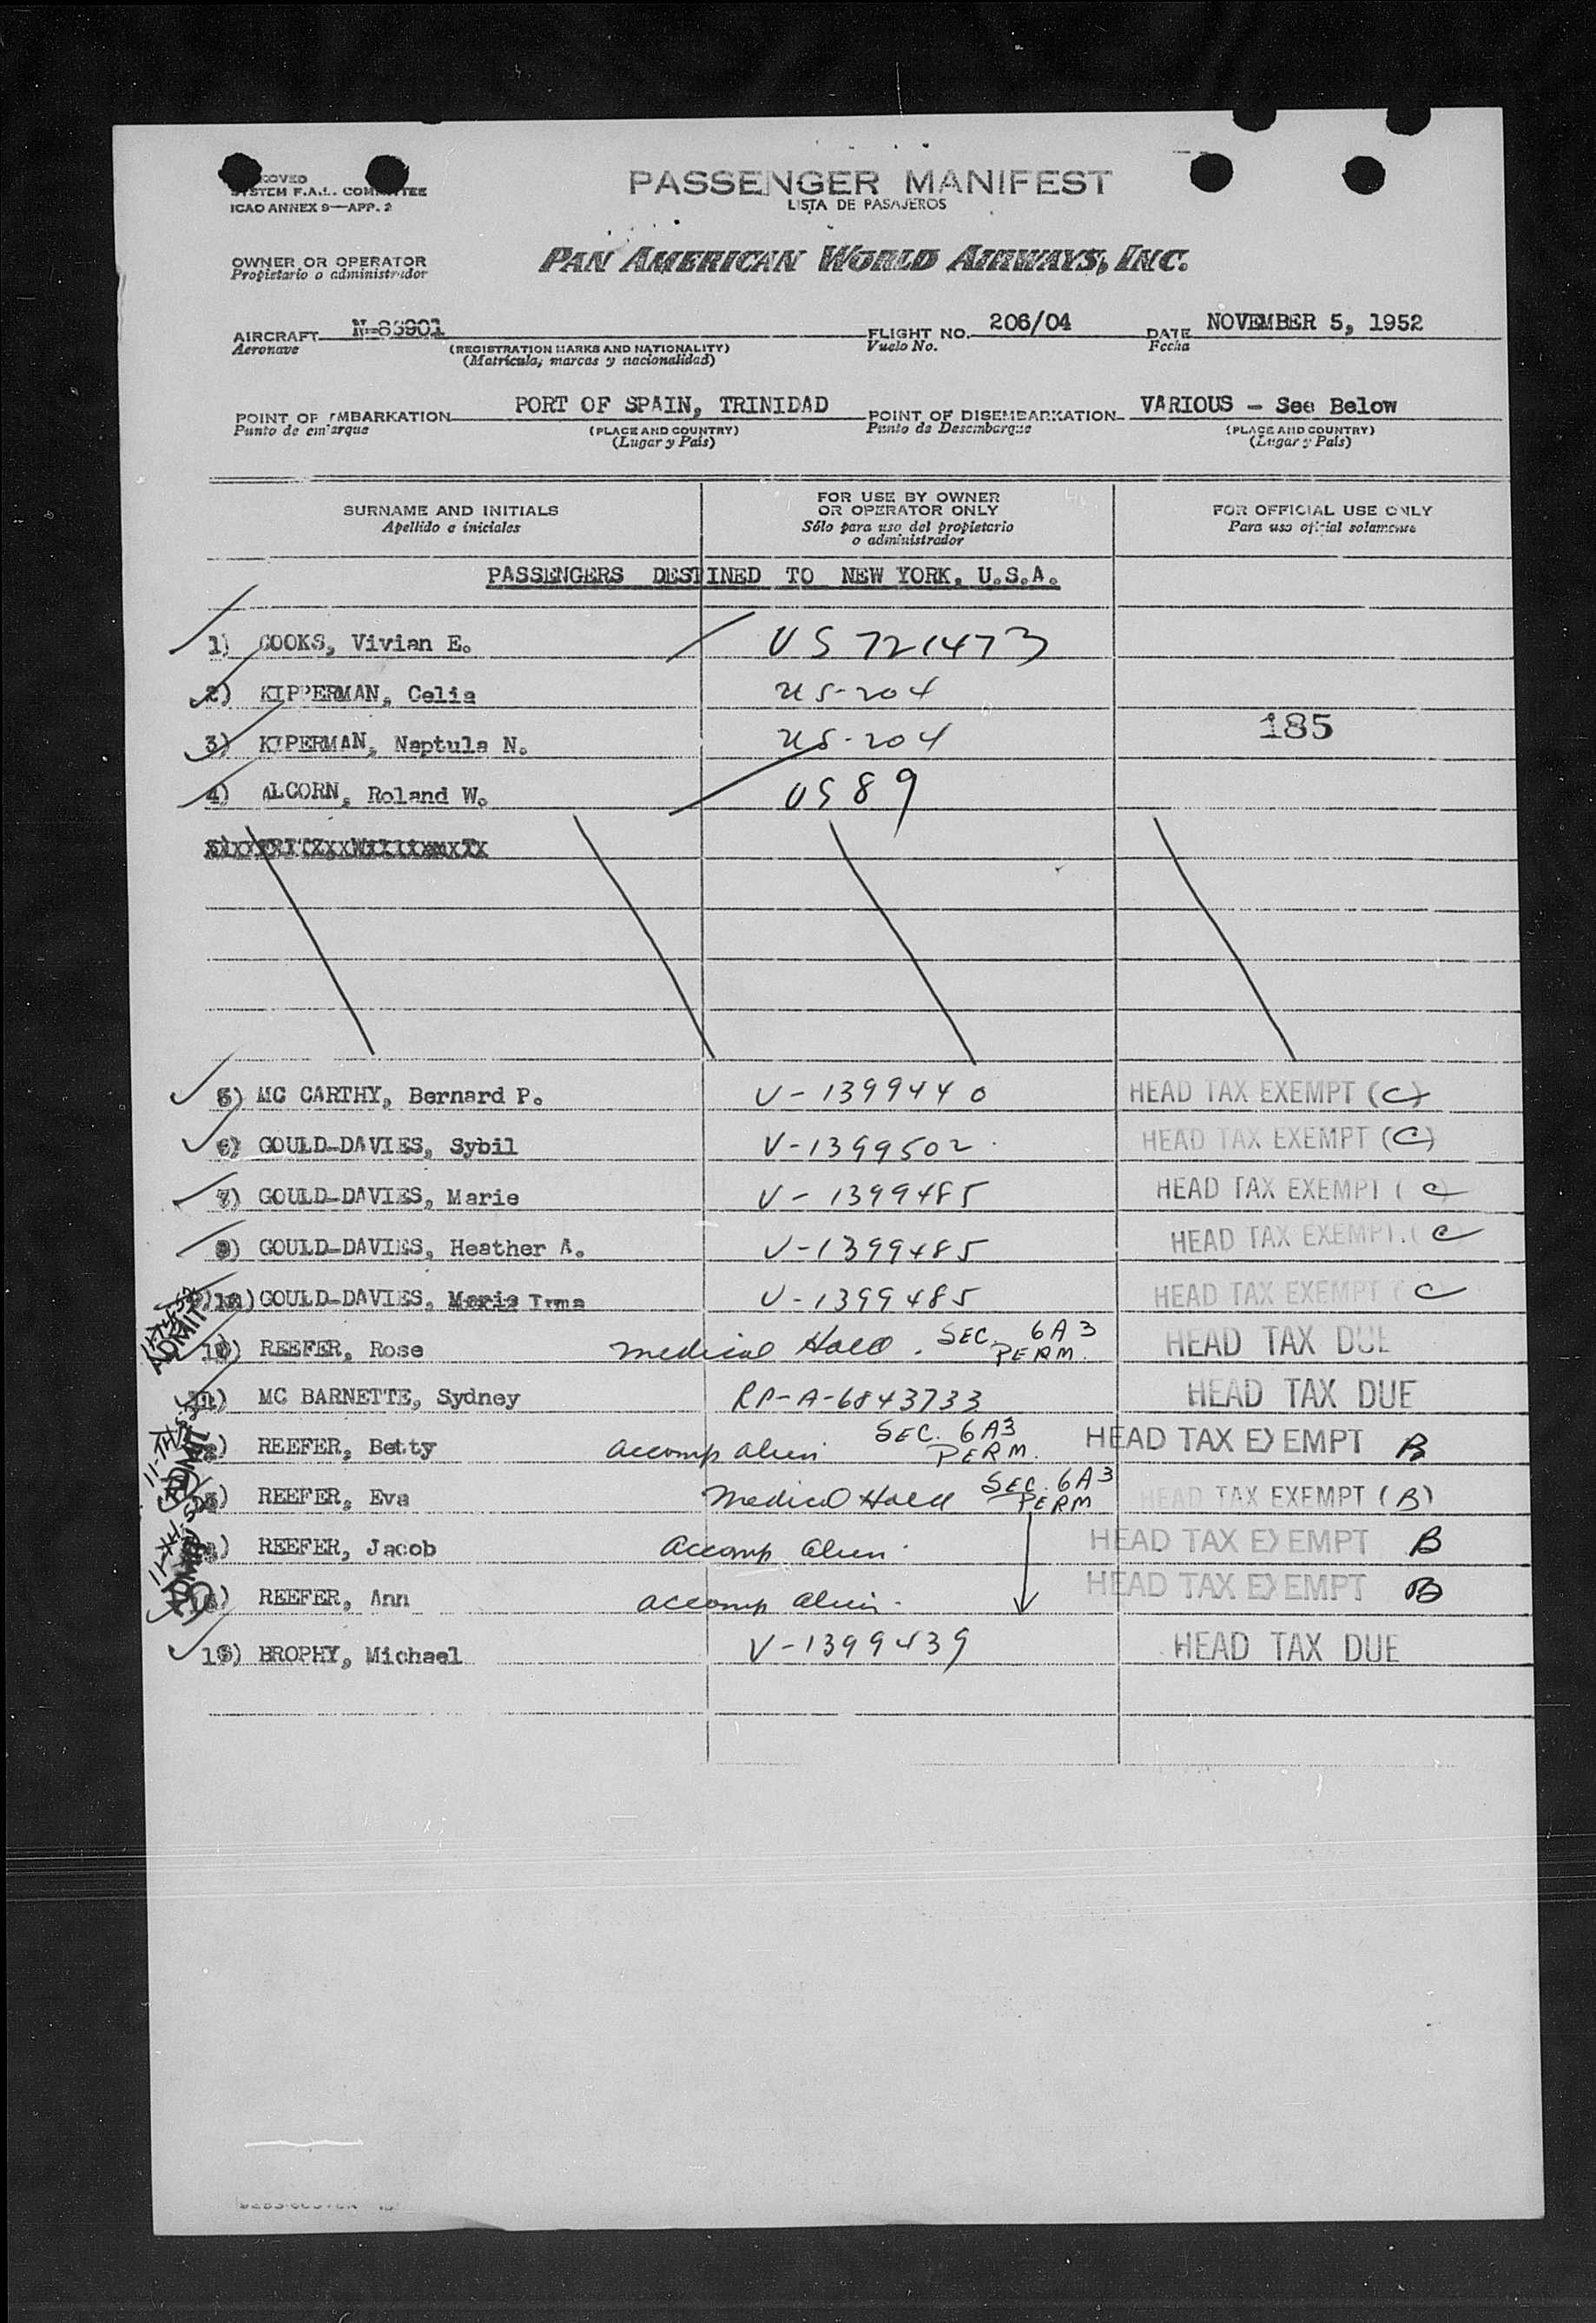 PASSENGER MANIFEST
LISTA DE PASAJEROS
SYSTEM F.A.L. COMMITTEE
ICAO ANNEX 9—APP. 2
OWNER OR OPERATOR
Propietario o administrador
PAN AMERICAN WORLD AIRWAYS, INC.
AIRCRAFT N-88901 FLIGHT NO. 206/04 DATE NOVEMBER 5, 1952
Aeronave (REGISTRATION MARKS AND NATIONALITY) Vuelo No. Fecha
(Matricula, marcas y nacionalidad)
POINT OF EMBARKATION PORT OF SPAIN, TRINIDAD POINT OF DISEMBARKATION VARIOUS - See Below
Punto de embarque (PLACE AND COUNTRY) Punto de Desembarque (PLACE AND COUNTRY)
(Lugar y País) (Lugar y País)
SURNAME AND INITIALS FOR USE BY OWNER OR OPERATOR ONLY FOR OFFICIAL USE ONLY
Apellido e iniciales Sólo para uso del propietario o administrador Para uso oficial solamente
PASSENGERS DESTINED TO NEW YORK, U.S.A.
1) COOKS, Vivian E. US 721473
2) KIPPERMAN, Celia US-204
3) KIPERMAN, Neptula N. US-204 185
4) ALCORN, Roland W. US 89
5) MC CARTHY, Bernard P. V-1399440 HEAD TAX EXEMPT (C)
6) GOULD-DAVIES, Sybil V-1399502 HEAD TAX EXEMPT (C)
7) GOULD-DAVIES, Marie V-1399485 HEAD TAX EXEMPT (C
8) GOULD-DAVIES, Heather A. V-1399485 HEAD TAX EXEMPT (C
9) GOULD-DAVIES, V-1399485 HEAD TAX EXEMPT (C
10) REEFER, Rose Medical Hold. SEC. 6A3 PERM. HEAD TAX DUE
11) MC BARNETTE, Sydney RP-A-6843733 HEAD TAX DUE
12) REEFER, Betty accomp alien SEC. 6A3 PERM. HEAD TAX EXEMPT B
13) REEFER, Eva Medical Hold SEC. 6A3 PERM HEAD TAX EXEMPT (B)
14) REEFER, Jacob accomp alien HEAD TAX EXEMPT B
15) REEFER, Ann accomp alien. HEAD TAX EXEMPT B
16) BROPHY, Michael V-1399439 HEAD TAX DUE
ADMIT
ADMIT
ADMIT